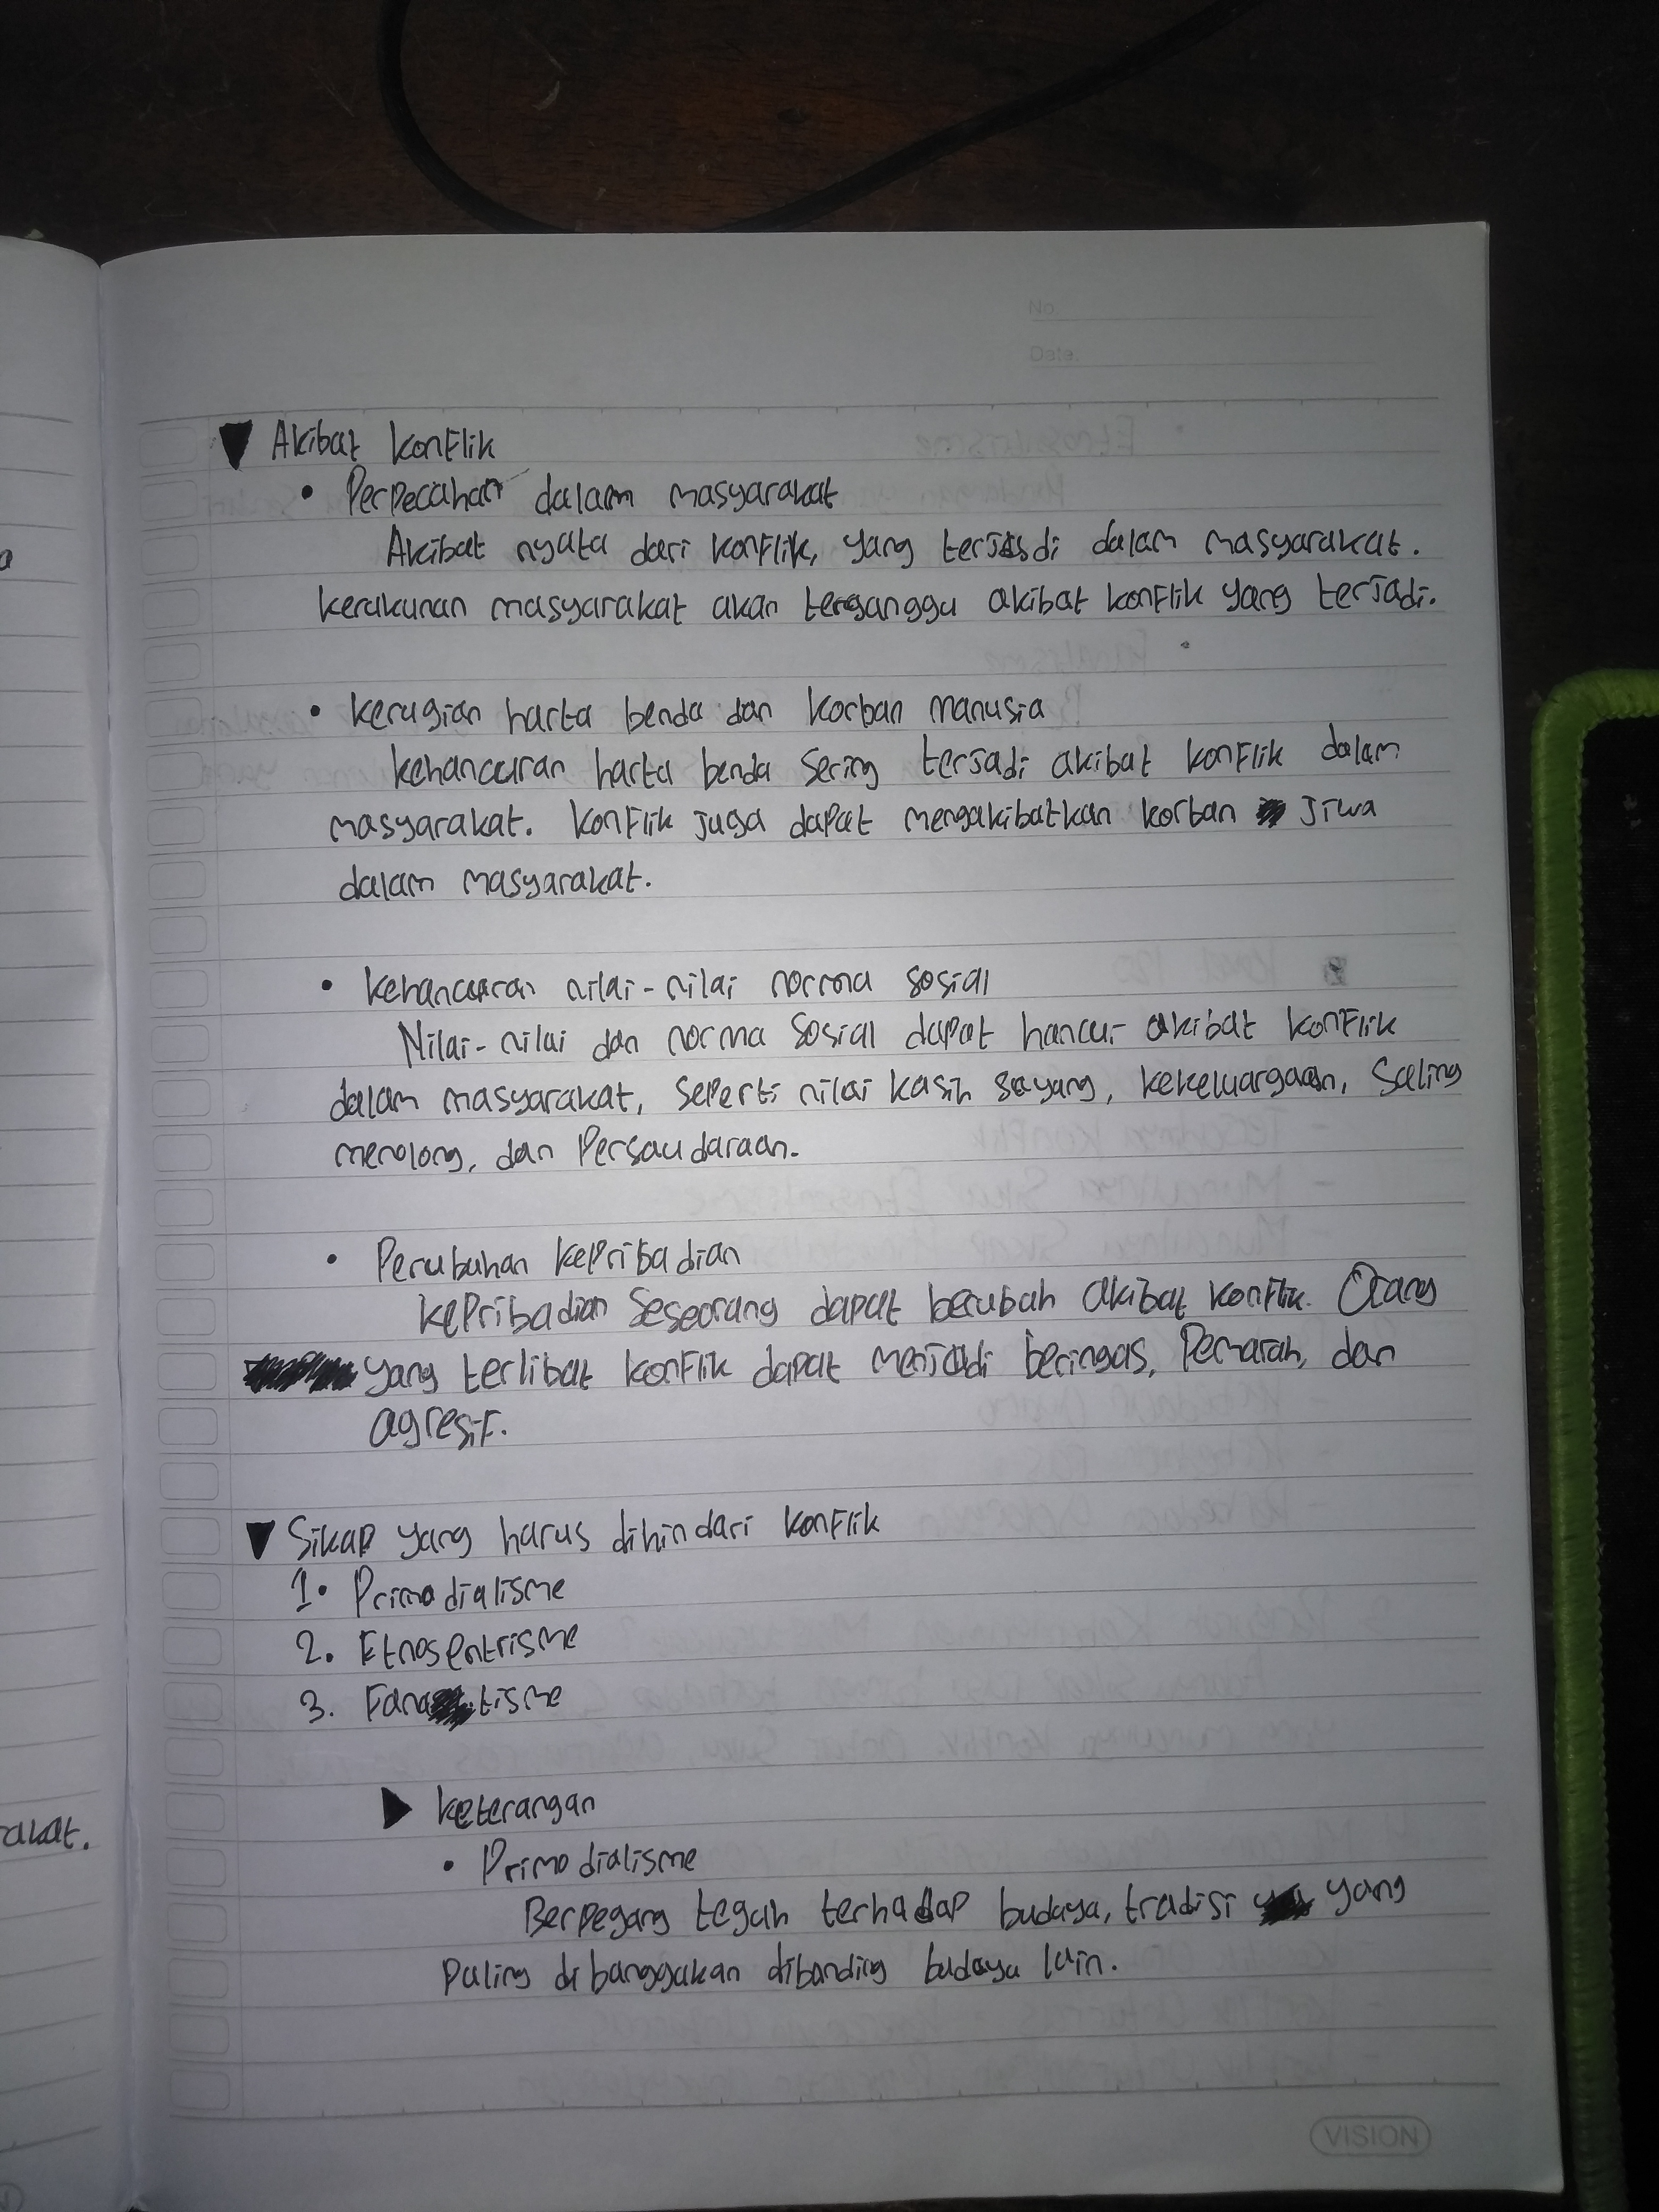 No
Date.
▼ Akibat Konflik
• Perpecahan dalam masyarakat
Akibat nyata dari konflik, yang terjadi dalam masyarakat.
Kerukunan masyarakat akan terganggu akibat konflik yang terjadi.
• Kerugian harta benda dan korban manusia
Kehancuran harta benda sering terjadi akibat konflik dalam
masyarakat. Konflik juga dapat mengakibatkan korban jiwa
dalam masyarakat.
• Kehancuran nilai-nilai norma sosial
Nilai-nilai dan norma sosial dapat hancur akibat konflik
dalam masyarakat, seperti nilai kasih sayang, kekeluargaan, saling
menolong, dan Persaudaraan.
• Perubahan kepribadian
Kepribadian seseorang dapat berubah akibat konflik. Orang
yang terlibat konflik dapat menjadi beringas, Pemarah, dan
agresif.
▼ Sikap yang harus dihindari konflik
1. Primodialisme
2. Etnosentrisme
3. Fanatisme
▶ Keterangan
• Primodialisme
Berpegang teguh terhadap budaya, tradisi yang
Paling dibanggakan dibanding budaya lain.
VISION
akat.